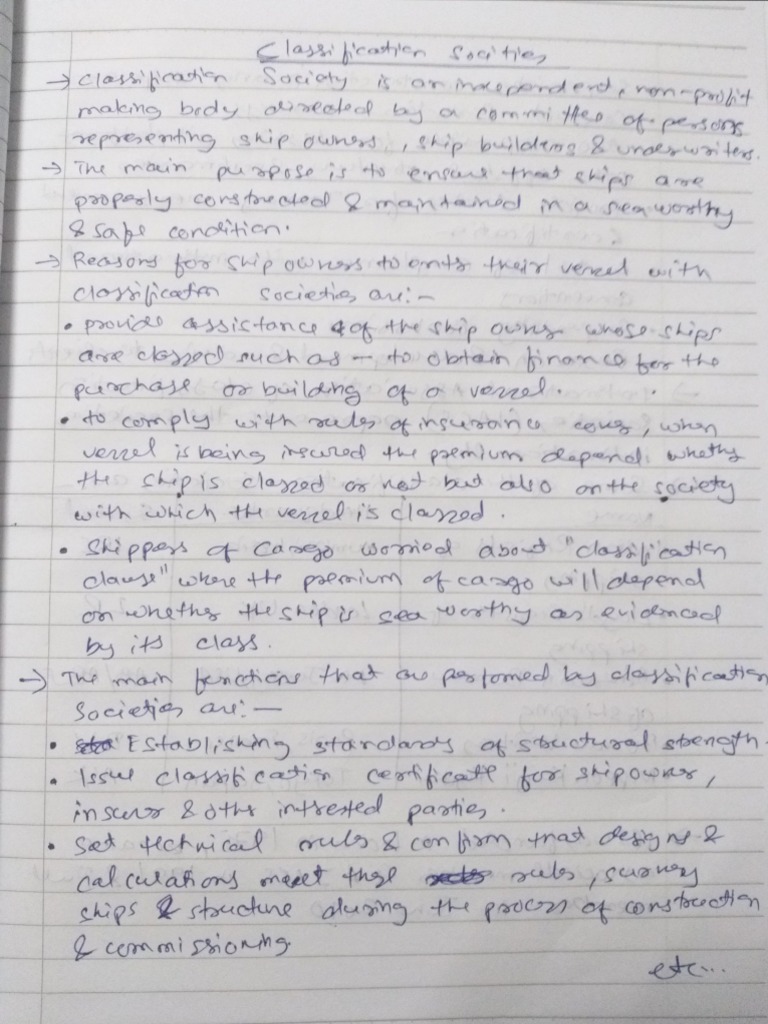 Classification Socities
→ Classification Society is an independent, non-profit
making body directed by a committee of persons
representing ship owners, ship builders & underwriters.
→ The main purpose is to ensure that ships are
properly constructed & maintained in a sea worthy
& safe condition.
→ Reasons for ship owners to enter their vessel with
classification societies are:-
• provide assistance of the ship owner whose ships
are classed such as - to obtain finance for the
purchase or building of a vessel.
• to comply with rules of insurance cover, when
vessel is being insured the premium depend whether
the ship is classed or not but also on the society
with which the vessel is classed.
• Shippers of cargo worried about "classification
clause" where the premium of cargo will depend
on whether the ship is sea worthy as evidenced
by its class.
→ The main functions that are performed by classification
Societies are:-
• Establishing standards of structural strength.
• Issue classification certificate for shipowner,
insurer & other intrested parties.
• Set technical rules & confirm that designs &
calculations meet these rules, survey
ships & structure during the process of construction
& commissioning.
etc...